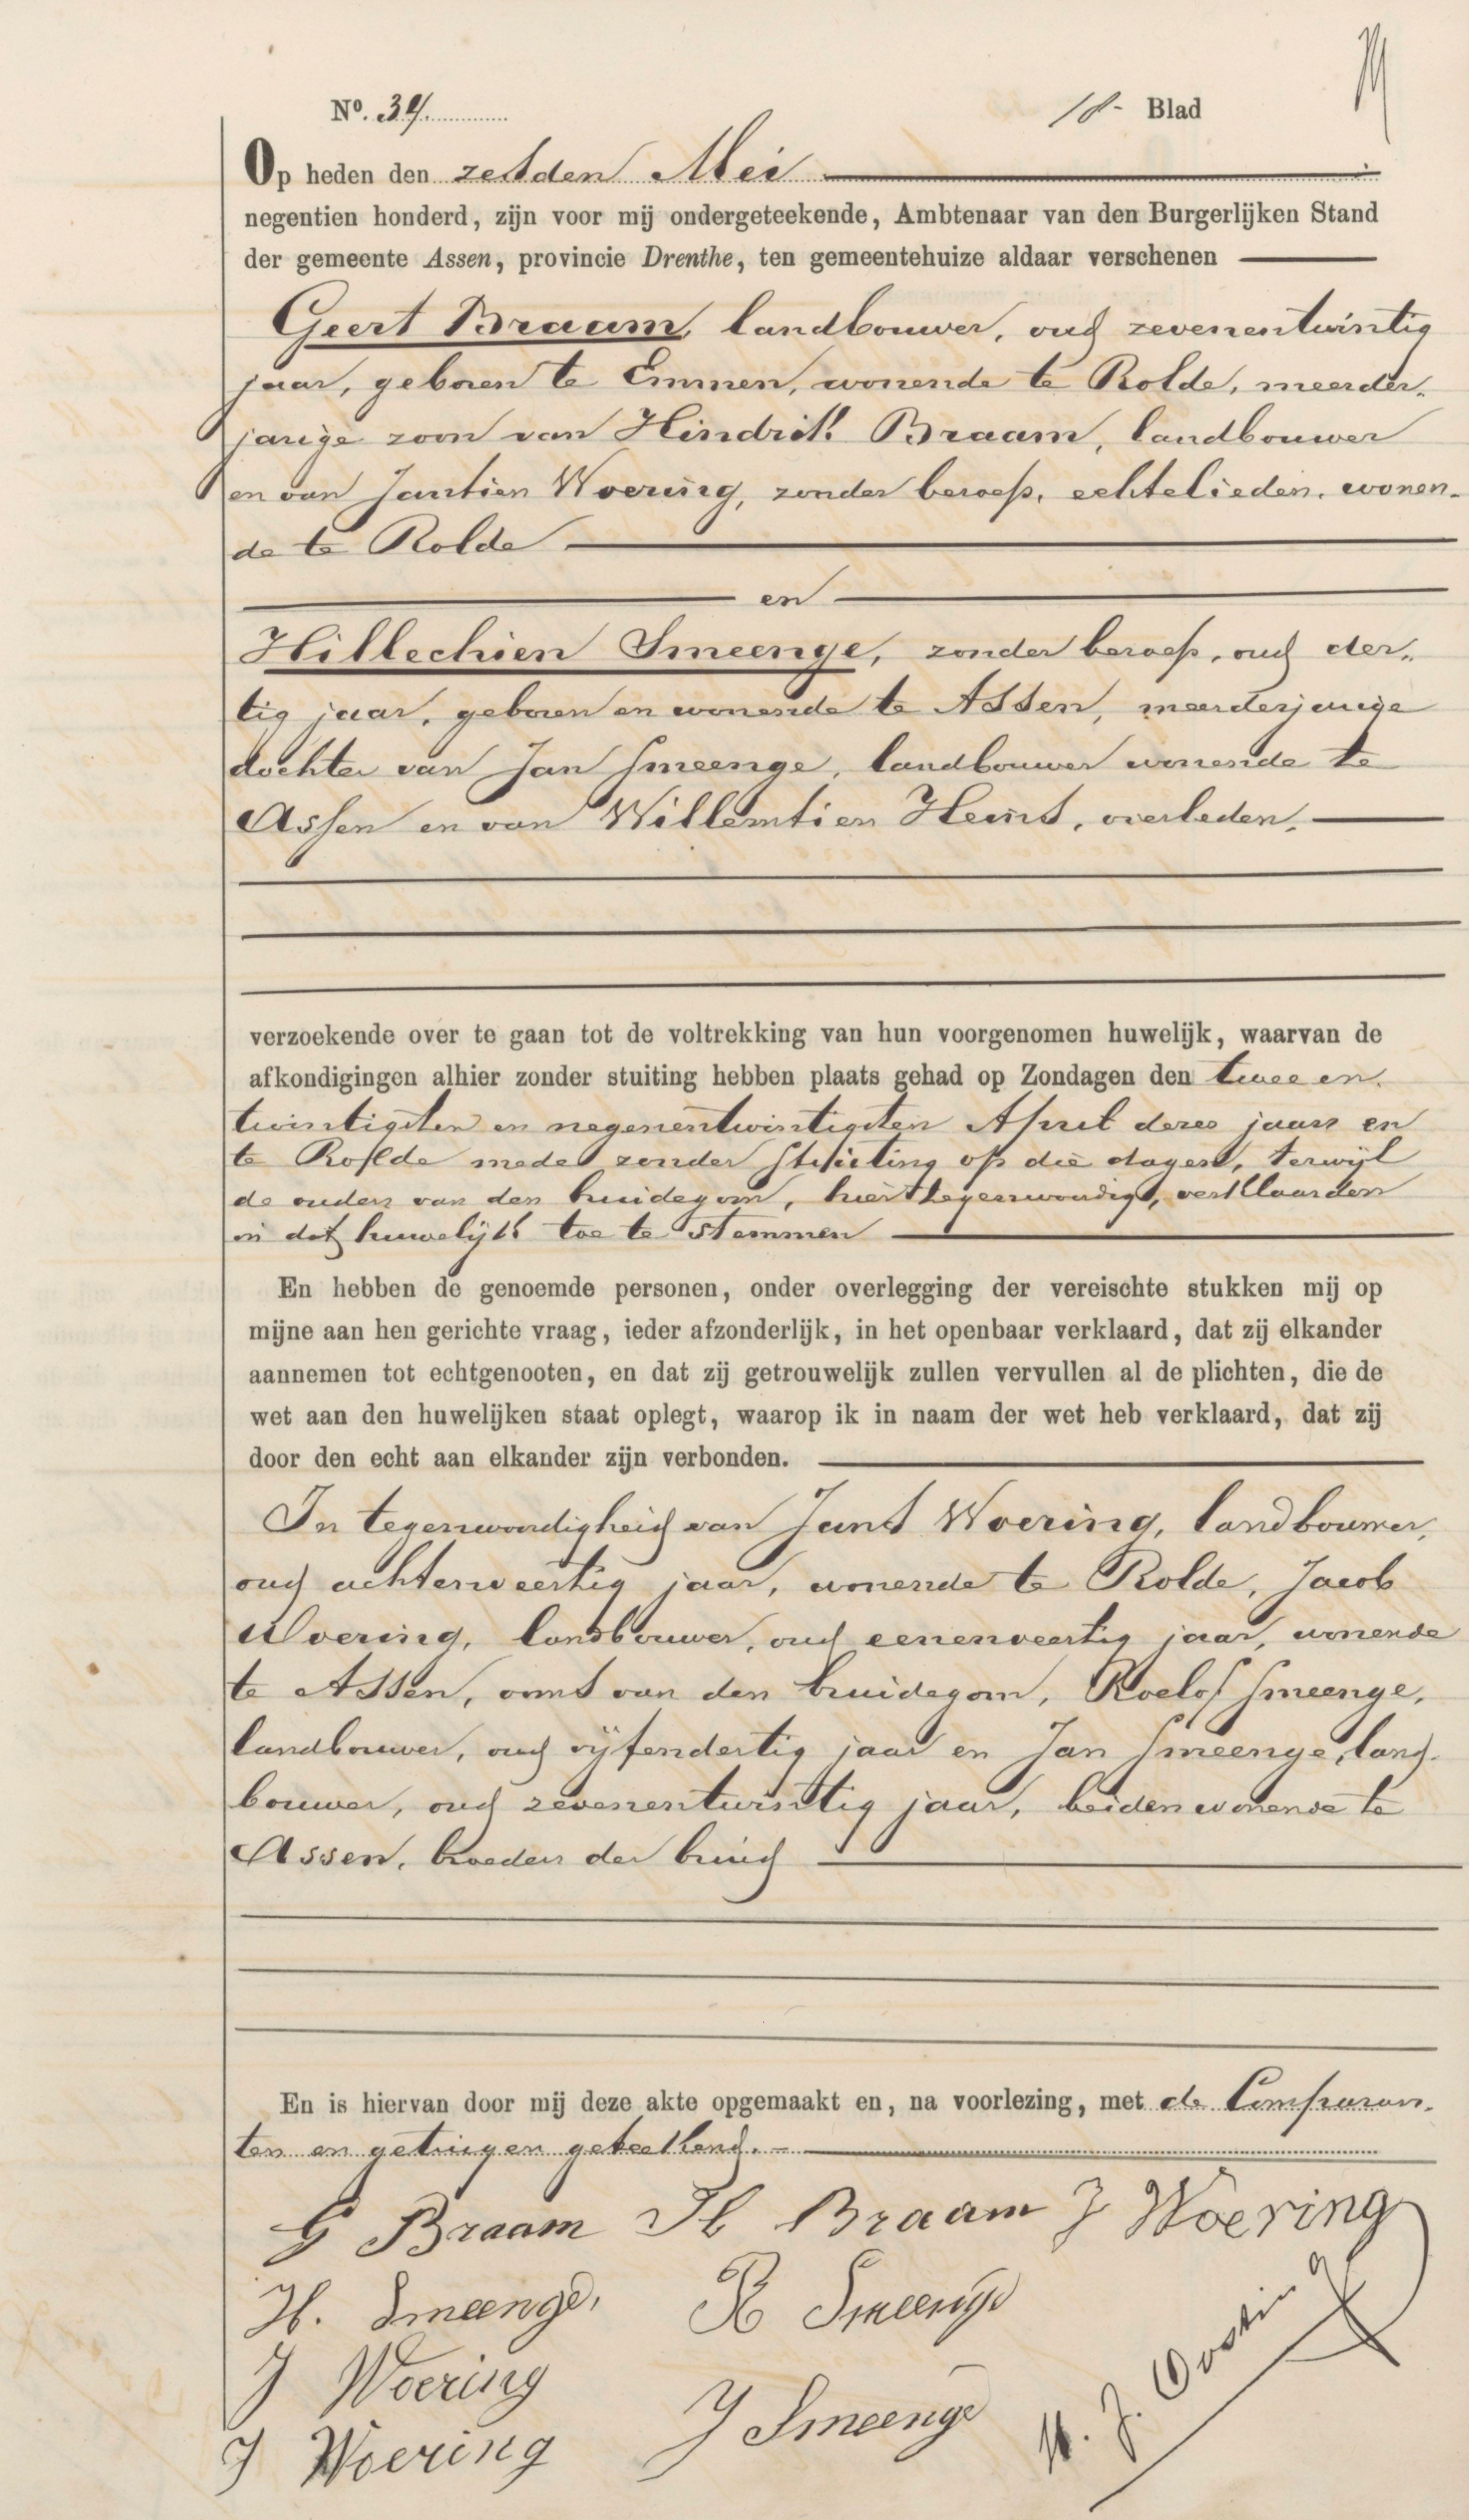 No. 34. 18- Blad
Op heden den zesden Mei
negentien honderd, zijn voor mij ondergeteekende, Ambtenaar van den Burgerlijken Stand
der gemeente Assen, provincie Drenthe, ten gemeentehuize aldaar verschenen
Geert Braam, landbouwer, oud zevenentwintig
jaar, geboren te Emmen, wonende te Rolde, meerder-
jarige zoon van Hindrik Braam, landbouwer
en van Jantien Woering, zonder beroep, echtelieden, wonen-
de te Rolde
en
Hillechien Smeenge, zonder beroep, oud der-
tig jaar, geboren en wonende te Assen, meerderjarige
dochter van Jan Smeenge, landbouwer wonende te
Assen en van Willemtien Heins, overleden,
verzoekende over te gaan tot de voltrekking van hun voorgenomen huwelijk, waarvan de
afkondigingen alhier zonder stuiting hebben plaats gehad op Zondagen den twee en
twintigsten en negenentwintigsten April dezes jaars en
te Rolde mede zonder stuiting op die dagen, terwijl
de ouders van den bruidegom, hier tegenwoordig, verklaarden
in dat huwelijk toe te stemmen
En hebben de genoemde personen, onder overlegging der vereischte stukken mij op
mijne aan hen gerichte vraag, ieder afzonderlijk, in het openbaar verklaard, dat zij elkander
aannemen tot echtgenooten, en dat zij getrouwelijk zullen vervullen al de plichten, die de
wet aan den huwelijken staat oplegt, waarop ik in naam der wet heb verklaard, dat zij
door den echt aan elkander zijn verbonden.
In tegenwoordigheid van Jans Woering, landbouwer,
oud achtenveertig jaar, wonende te Rolde, Jacob
Woering, landbouwer, oud eenenveertig jaar, wonende
te Assen, ooms van den bruidegom, Roelof Smeenge,
landbouwer, oud vijfendertig jaar en Jan Smeenge, land-
bouwer, oud zevenentwintig jaar, beiden wonende te
Assen, broeders der bruid
En is hiervan door mij deze akte opgemaakt en, na voorlezing, met de Comparan-
ten en getuigen geteekend.
G Braam H Braam J Woering
H. Smeenge, R Smeenge
J Woering
J Smeenge
J Woering